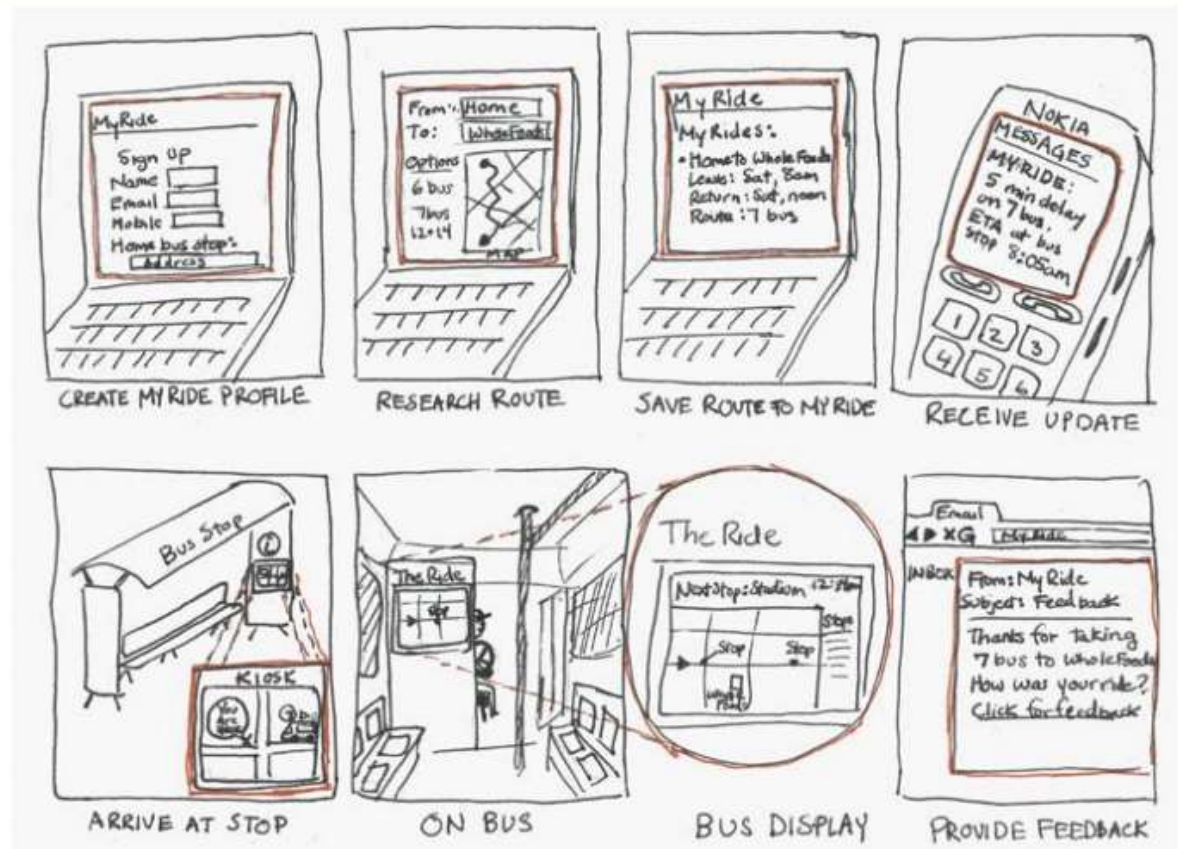 MyRide
Sign up
Name
Email
Mobile
Home bus stop:
Address
CREATE MYRIDE PROFILE
From: Home
To: Whole Foods
Options
6 bus
7 bus
12+14
MAP
RESEARCH ROUTE
MyRide
MyRides:
• Home to Whole Foods
Leave: Sat, 8am
Return: Sat, noon
Route: 7 bus
SAVE ROUTE TO MYRIDE
NOKIA
MESSAGES
MY RIDE:
5 min delay
on 7 bus.
ETA at bus
stop 8:05am
1 2 3
4 5 6
RECEIVE UPDATE
Bus Stop
i
KIOSK
You
Are
ARRIVE AT STOP
The Ride
Stop
ON BUS
The Ride
Next Stop: Stadium
Stops
Stop Stop
Whole
Foods
BUS DISPLAY
Email
X G MyRide
INBOX
From: My Ride
Subject: Feedback
Thanks for taking
7 bus to Whole Foods
How was your ride?
Click for feedback
PROVIDE FEEDBACK